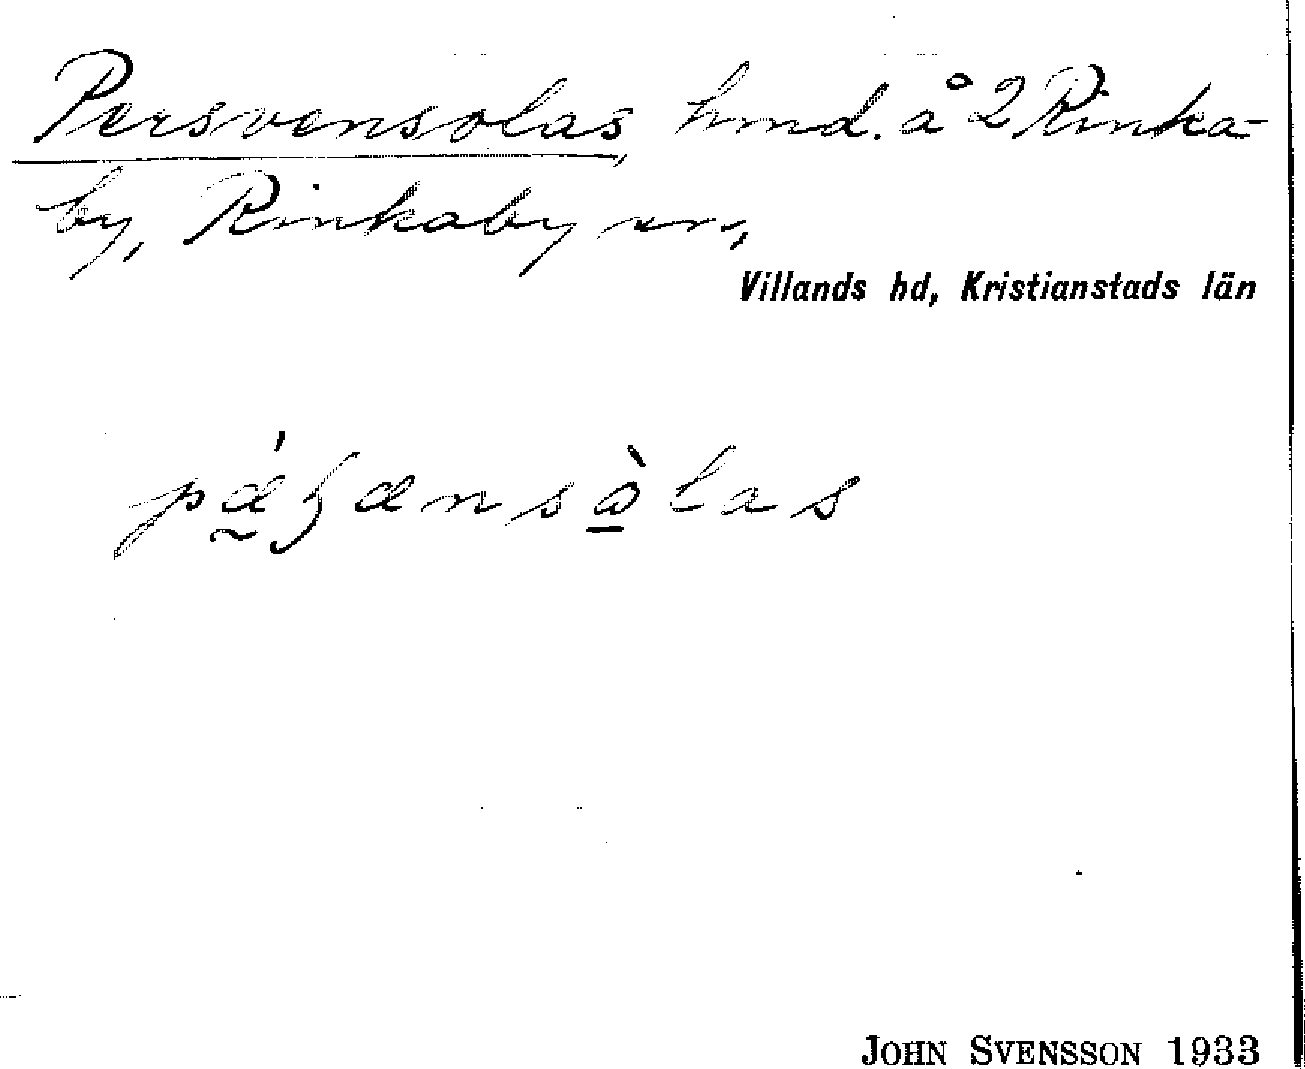 Persvensolas, hmd. å 2 Rinka-
by, Rinkaby sn,
Villands hd, Kristianstads län
JOHN SVENSSON 1933